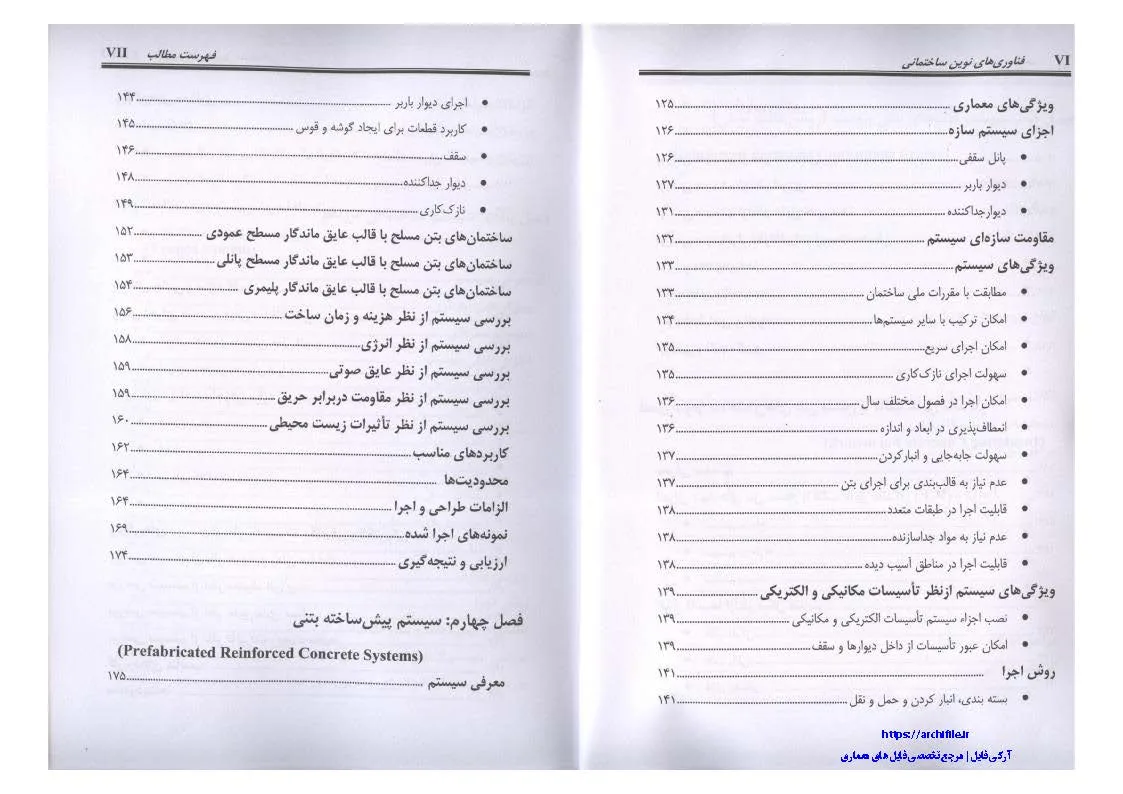 VI فناوری‌های نوین ساختمانی
ویژگی‌های معماری ۱۲۵
اجزای سیستم سازه ۱۲۶
• پانل سقفی ۱۲۶
• دیوار باربر ۱۲۷
• دیوار جداکننده ۱۳۱
مقاومت سازه‌ای سیستم ۱۳۲
ویژگی‌های سیستم ۱۳۳
• مطابقت با مقررات ملی ساختمان ۱۳۳
• امکان ترکیب با سایر سیستم‌ها ۱۳۴
• امکان اجرای سریع ۱۳۵
• سهولت اجرای نازک‌کاری ۱۳۵
• امکان اجرا در فصول مختلف سال ۱۳۶
• انعطاف‌پذیری در ابعاد و اندازه ۱۳۶
• سهولت جابه‌جایی و انبارکردن ۱۳۷
• عدم نیاز به قالب‌بندی برای اجرای بتن ۱۳۷
• قابلیت اجرا در طبقات متعدد ۱۳۸
• عدم نیاز به مواد جداسازنده ۱۳۸
• قابلیت اجرا در مناطق آسیب دیده ۱۳۸
ویژگی‌های سیستم ازنظر تأسیسات مکانیکی و الکتریکی ۱۳۹
• نصب اجزاء سیستم تأسیسات الکتریکی و مکانیکی ۱۳۹
• امکان عبور تأسیسات از داخل دیوارها و سقف ۱۳۹
روش اجرا ۱۴۱
• بسته بندی، انبار کردن و حمل و نقل ۱۴۱
فهرست مطالب VII
• اجرای دیوار باربر ۱۴۴
• کاربرد قطعات برای ایجاد گوشه و قوس ۱۴۵
• سقف ۱۴۶
• دیوار جداکننده ۱۴۸
• نازک‌کاری ۱۴۹
ساختمان‌های بتن مسلح با قالب عایق ماندگار مسطح عمودی ۱۵۲
ساختمان‌های بتن مسلح با قالب عایق ماندگار مسطح پانلی ۱۵۳
ساختمان‌های بتن مسلح با قالب عایق ماندگار پلیمری ۱۵۴
بررسی سیستم از نظر هزینه و زمان ساخت ۱۵۶
بررسی سیستم از نظر انرژی ۱۵۸
بررسی سیستم از نظر عایق صوتی ۱۵۹
بررسی سیستم از نظر مقاومت دربرابر حریق ۱۵۹
بررسی سیستم از نظر تأثیرات زیست محیطی ۱۶۰
کاربردهای مناسب ۱۶۲
محدودیت‌ها ۱۶۴
الزامات طراحی و اجرا ۱۶۴
نمونه‌های اجرا شده ۱۶۹
ارزیابی و نتیجه‌گیری ۱۷۴
فصل چهارم: سیستم پیش‌ساخته بتنی
(Prefabricated Reinforced Concrete Systems)
معرفی سیستم ۱۷۵
https://archifile.ir
آرکی فایل | مرجع تخصصی فایل های معماری